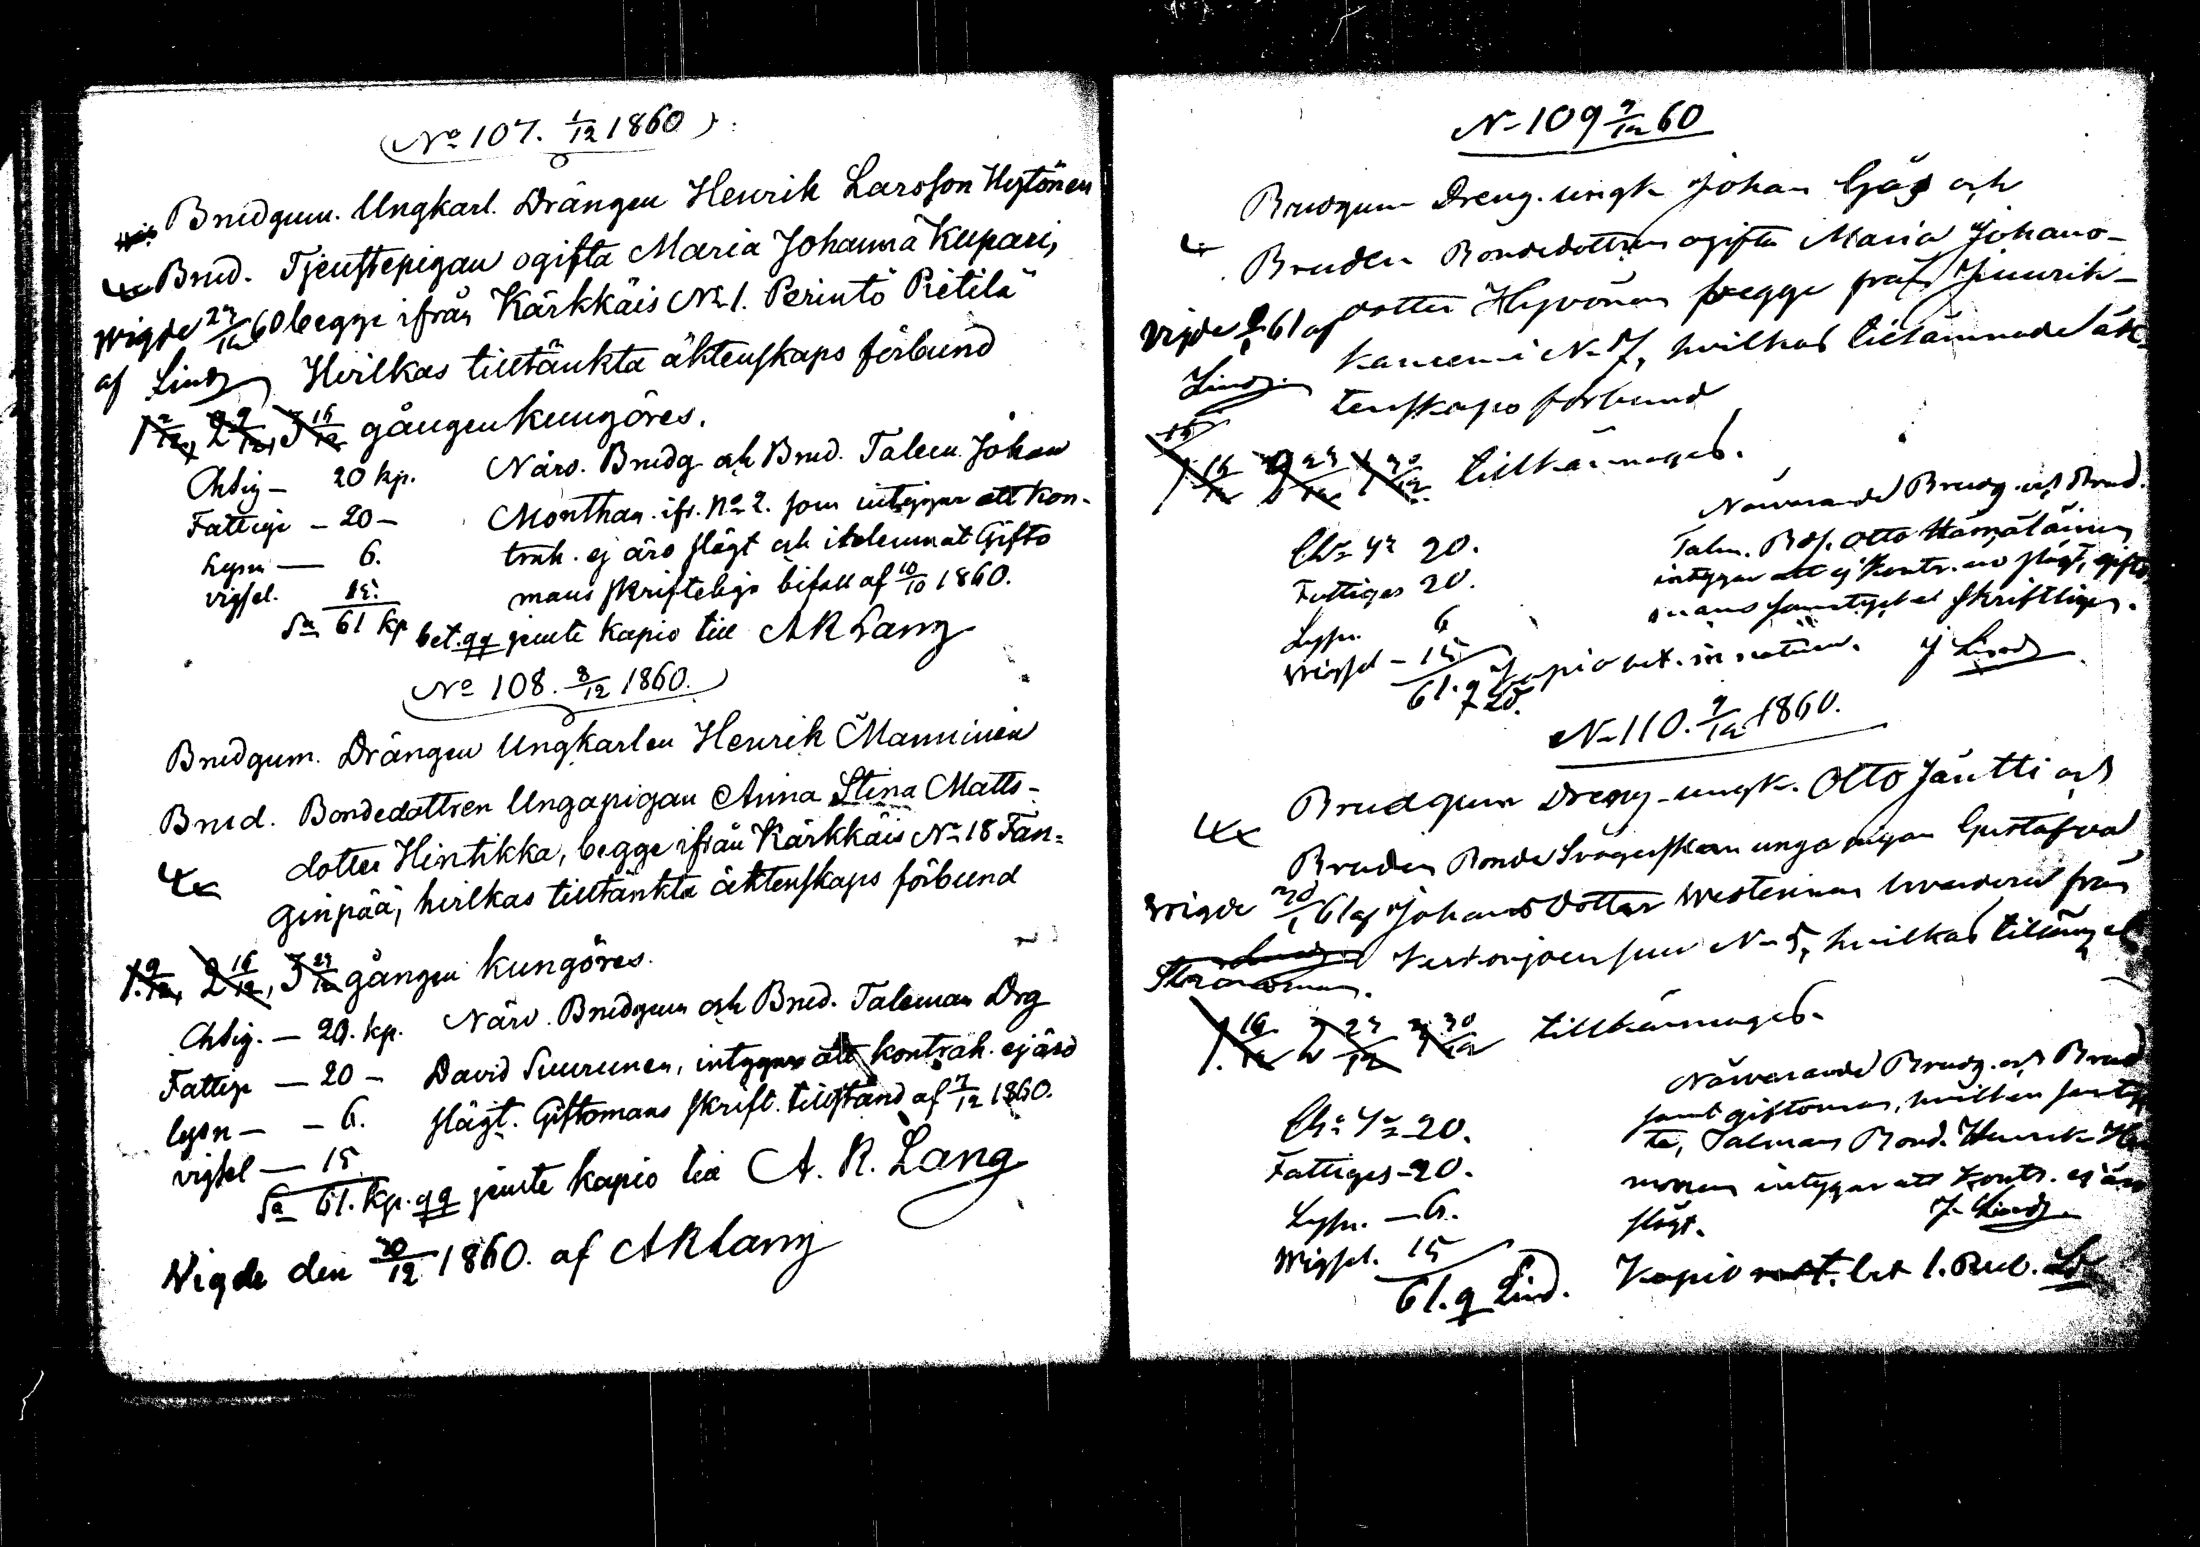 No 107. 1/12 1860
Brudgum. Ungkarl. Drängen Henrik Larsson Hytönen
Brud. Tjenstepigan ogifta Maria Johanna Kupari,
wigde 27/12 60 begge ifrån Kärkkäis No 1. Perintö Ritilä
af Lind Hvilkas tilltänkta äktenskaps förbund
1 2/12, 2 9/12, 3 16/12 gången kungöres.
Närv. Brudg och Brud. Talem. Johan
Chsig — 20 kp.
Monthan ifr. No 2. som intygar att kon-
Fattige — 20 —
trah. ej äro slägt och inlemnat Gifto
Lysn — 6.
mans skrifteliga bifall af 10/10 1860.
vigsel. 15.
Sa 61 kp bet. qq jemte kapio till A R Lang
No 108. 8/12 1860.
Brudgum. Drängen Ungkarlen Henrik Manninen
Brud. Bondedottren Ungapigan Anna Stina Matts-
dotter Hintikka, begge ifrån Kärkkäis No 18 Fan-
ginpää, hvilkas tilltänkta äktenskaps förbund
1. 9/12, 2 16/12, 3 23/12 gången kungöres.
Närv. Brudgum och Brud. Taleman Drg
Chsig. — 20. kp.
David Suurunen, intygar att kontrah. ej äro
Fattige — 20 —
slägt. Giftomans skrift. tillstånd af 7/12 1860.
lysn — — 6.
vigsel — 15
Sa 61. kp. qq jemte kapio till A. R. Lang
Vigde den 30/12 1860. af A R Lang
N- 109 9/12 60
Brudgum Dreng. ungk Johan och
Bruden Bondedottren ogifta Maria Johans-
dotter Hyvönen begge från Juurik-
vigde 61 af
kaniemi N- 7, hvilkas tillämnade äk-
Lind
tenskaps förbund
1 16/12 2 23/12 3 30/12 tillkännages.
Närvarande Brudg. och Brud.
Talm. Otto Hämäläinen
20.
intygar att ej kontr. äro slägt, gifto
Fattiges 20.
mans samtycket skriftligen.
Lysn. 6
Wigsel — 15
61. q kapio bet. in natura. J Lind
N- 110. 9/12 1860.
Brudgum Dreng. ungk. Otto Jäntti och
Bruden Bonde Svägerskan unga pigan Gustafva
wigde 20/1 61 af Johans Dotter Westerinen hvardera från
N- 5, hvilkas
1. 16/12 2 23/12 3 30/12 tillkännages.
Närvarande Brudg. och Brud
samt giftoman, hvilken samtyk
20.
te, Talman Bond. Henrik
Fattiges — 20.
intygar att kontr. ej äro
Lysn. — 6.
slägt. J. Lind
Wigsel. 15
61. q Lind. Kapio bet 1. Rub.